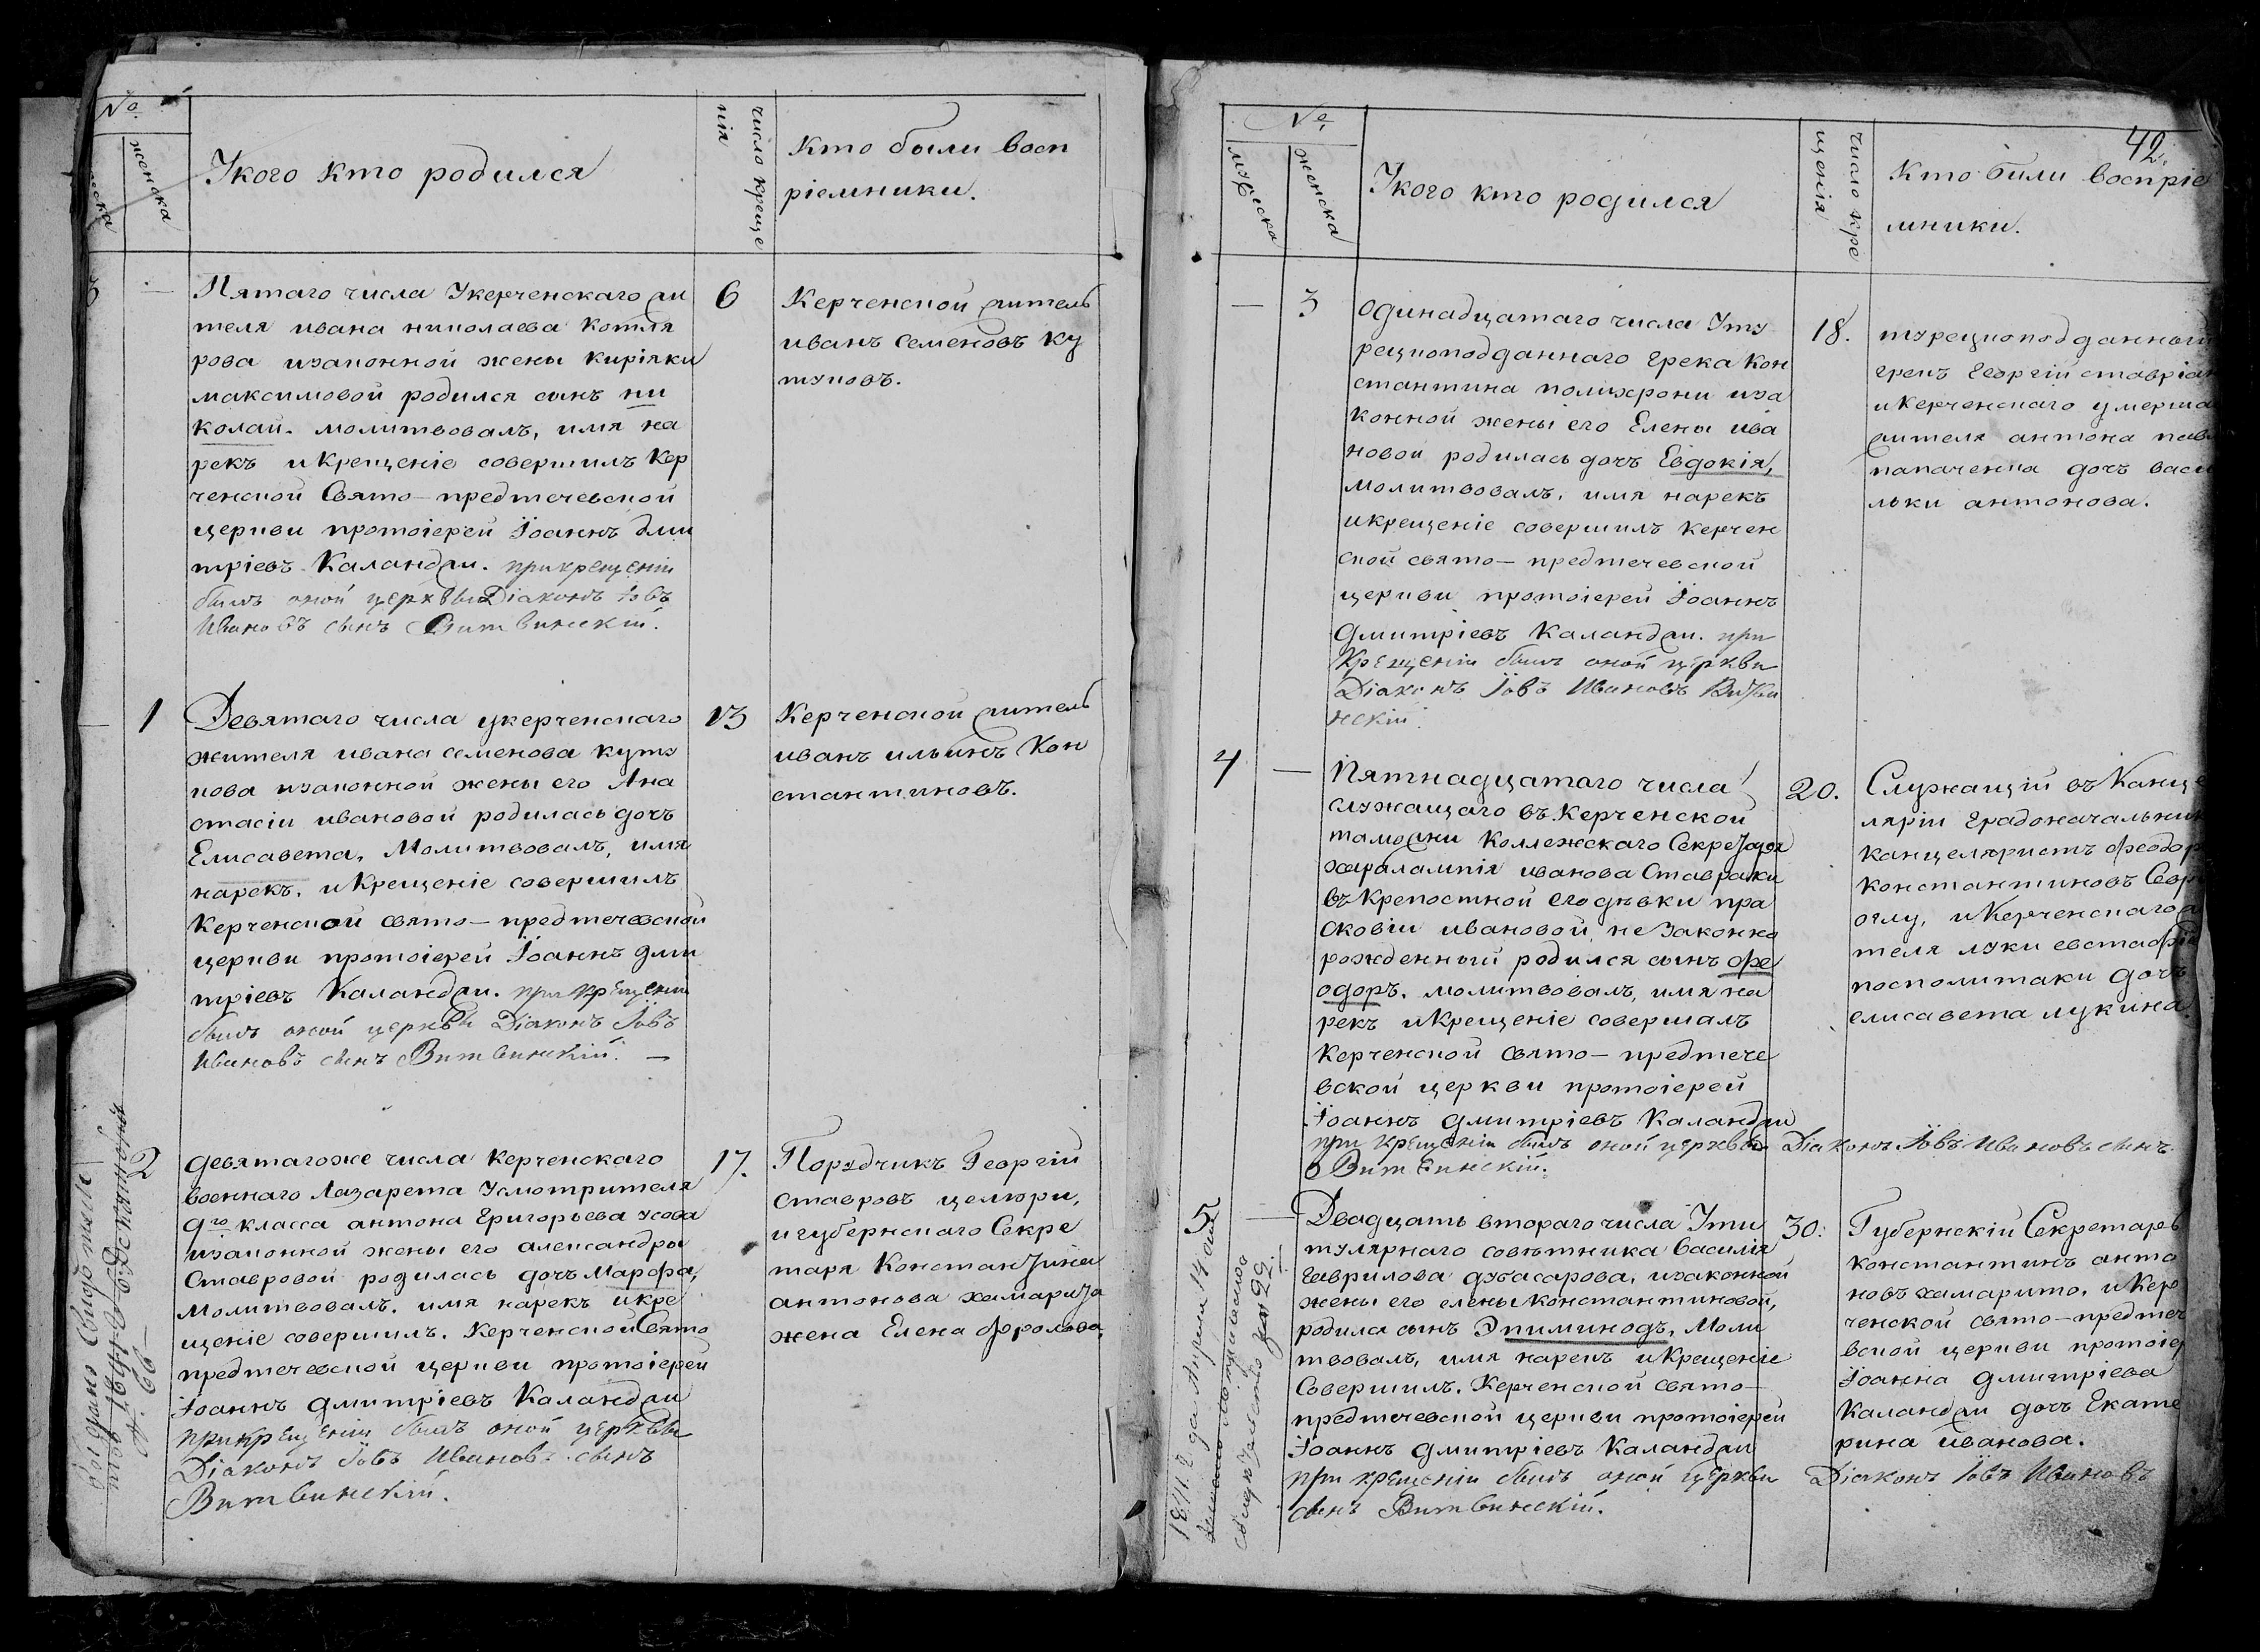 №
женска
Укого кто родился
число креще
нія
кто были восп
ріемники.
Пятаго числа Укерченскаго жи
теля ивана николаева Котля
рова изаконной жены кирiяки
максимовой родился сынъ ни
колай. молитвовалъ, имя на
рекъ и крещеніе совершилъ Кер
ченской Свято-предтечевской
церкви протоіерей Іоаннъ дми
тріевъ Каланджи. при крещеніи
былъ оной церквы Діаконъ Іовъ
Ивановъ сынъ Витвинскій.
6
Керченской житель
иванъ семеновъ ку
туповъ.
1
Девятаго числа укерченскаго
жителя ивана семенова куту
пова изаконной жены его Ана
стасіи ивановой родилась дочъ
Елисавета, Молитвовалъ, имя
нарекъ, и Крещеніе совершилъ
Керченской свято-предтечевской
церкви протоіерей Іоаннъ дми
тріевъ Каланджи. при крещеніи
былъ оной церквы Діаконъ Іовъ
Ивановъ сынъ Витвинскій. —
13
Керченской житель
иванъ ильинъ Кон
стантиновъ.
2
девятагоже числа Керченскаго
военнаго Лазарета Усмотрителя
9го класса антона Григорьева усова
изаконной жены его александры
Ставровой родилась дочъ Марфа,
молитвовалъ. имя нарекъ икре
щеніе совершилъ. Керченской Свято
предтечевской церкви протоіерей
Іоаннъ дмитріевъ Каланджи
при крещеніи былъ оной церквы
Діаконъ Іовъ Ивановъ сынъ
Витвинскій.
17.
Порудчикъ Георгій
Ставровъ целюри,
и губернскаго Секре
таря Константина
антонова хамарита
жена Елена фролова,
Выдано Свидетель
№ 66
42.
№,
мужеска
женска
Укого кто родился
число кре
щенія
Кто били воспріе
мники.
—
3
одинадцатаго числа Уту
рецкоподданнаго грека Кон
стантина полихрони иза
конной жены его Елены ива
новой родилась дочъ Евдокія,
молитвовалъ. имя нарекъ
икрещеніе совершилъ керчен
ской свято-предтечевской
церкви протоіерей Іоаннъ
дмитріевъ Каланджи. при
Крещеніи былъ оной церкви
Діаконъ Іовъ Ивановъ Витви
нскій.
18.
турецкоподданный
грекъ Георгій
и Керченскаго
жителя антона
дочъ васи
льки антонова.
4
—
Пятнадцатаго числа У
служащаго въ Керченской
таможни Коллежскаго Секретаря
харалампія иванова Ставраки
въ крепостной его девки пра
сковіи ивановой, не законно
рожденный родился сынъ фе
одоръ. молитвовалъ, имя на
рекъ и Крещеніе совершалъ
Керченской свято-предтече
вской церкви протоіерей
Іоаннъ дмитріевъ Каланджи
при крещеніи былъ оной церквы Діаконъ Іовъ Ивановъ сынъ
Витвинскій.
20.
Служащій въ Канце
ляріи градоначальник
канцеляристъ феодор
константиновъ
оглу, и Керченскаго жи
теля луки евстафіе
посполитаки дочъ
елисавета лукина.
5
—
Двадцать втораго числа Ути
тулярнаго совѣтника василія
гаврилова дубасарова, изаконной
жены его елены константиновой,
родился сынъ Эпиминодъ, Моли
твовалъ, имя нарекъ и Крещеніе
Совершилъ. Керченской свято-
предтечевской церкви протоіерей
Іоаннъ дмитріевъ Каланджи
при крещеніи былъ оной церкви Діаконъ Іовъ Ивановъ
сынъ Витвинскій.
30.
Губернскій Секретарь
константинъ анто
новъ хамарито, и Кер
ченской свято-предтеч
вской церкви протоіер
Іоанна дмитріева
Каланджи дочъ Екате
рина иванова.